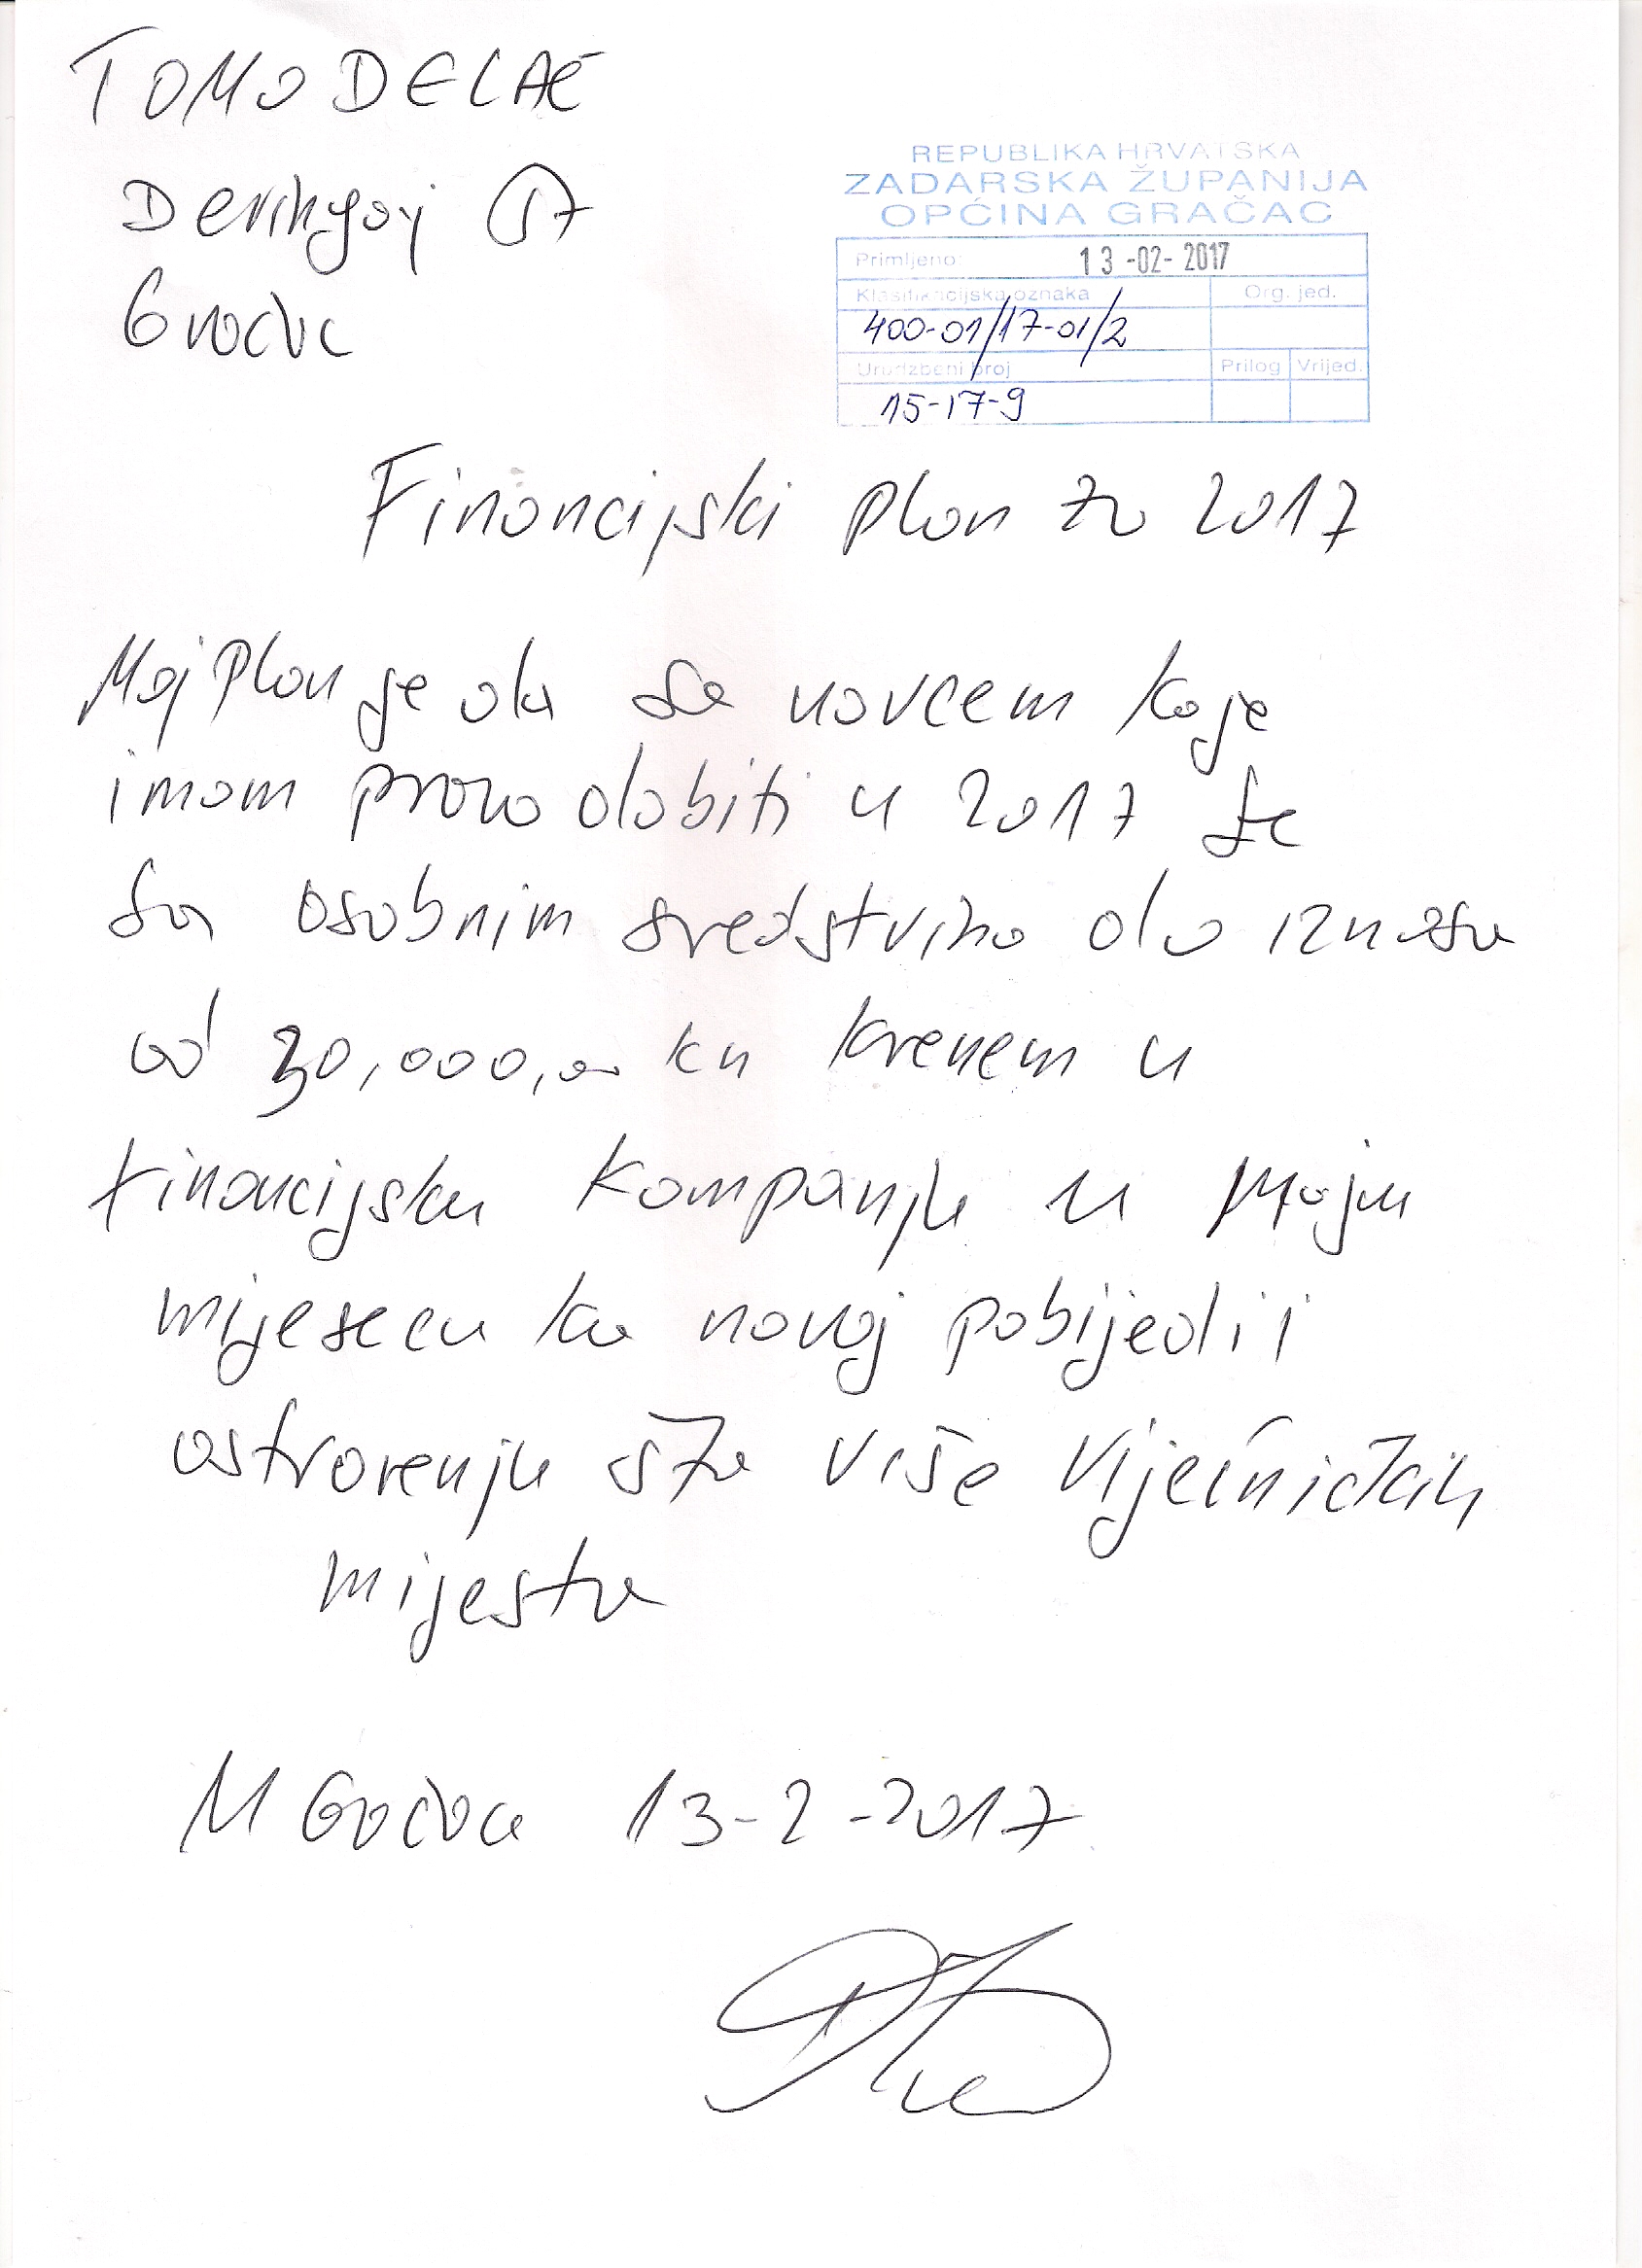 TOMO DELAČ
Deringaj 57
Gračac
REPUBLIKA HRVATSKA
ZADARSKA ŽUPANIJA
OPĆINA GRAČAC
Primljeno: 13-02-2017
Klasifikacijska oznaka Org. jed.
400-01/17-01/2
Urudžbeni broj Prilog Vrijed.
15-17-9
Financijski plan za 2017
Moj plan je da sa novcem koje
imam pravo dobiti u 2017 te
sa osobnim sredstvima do iznosa
od 30,000,00 kn krenem u
financijsku kampanju u Maju
mijesecu ka novoj pobijedi i
ostvarenju što više Vijećničkih
mijesta
U Gračacu 13-2-2017